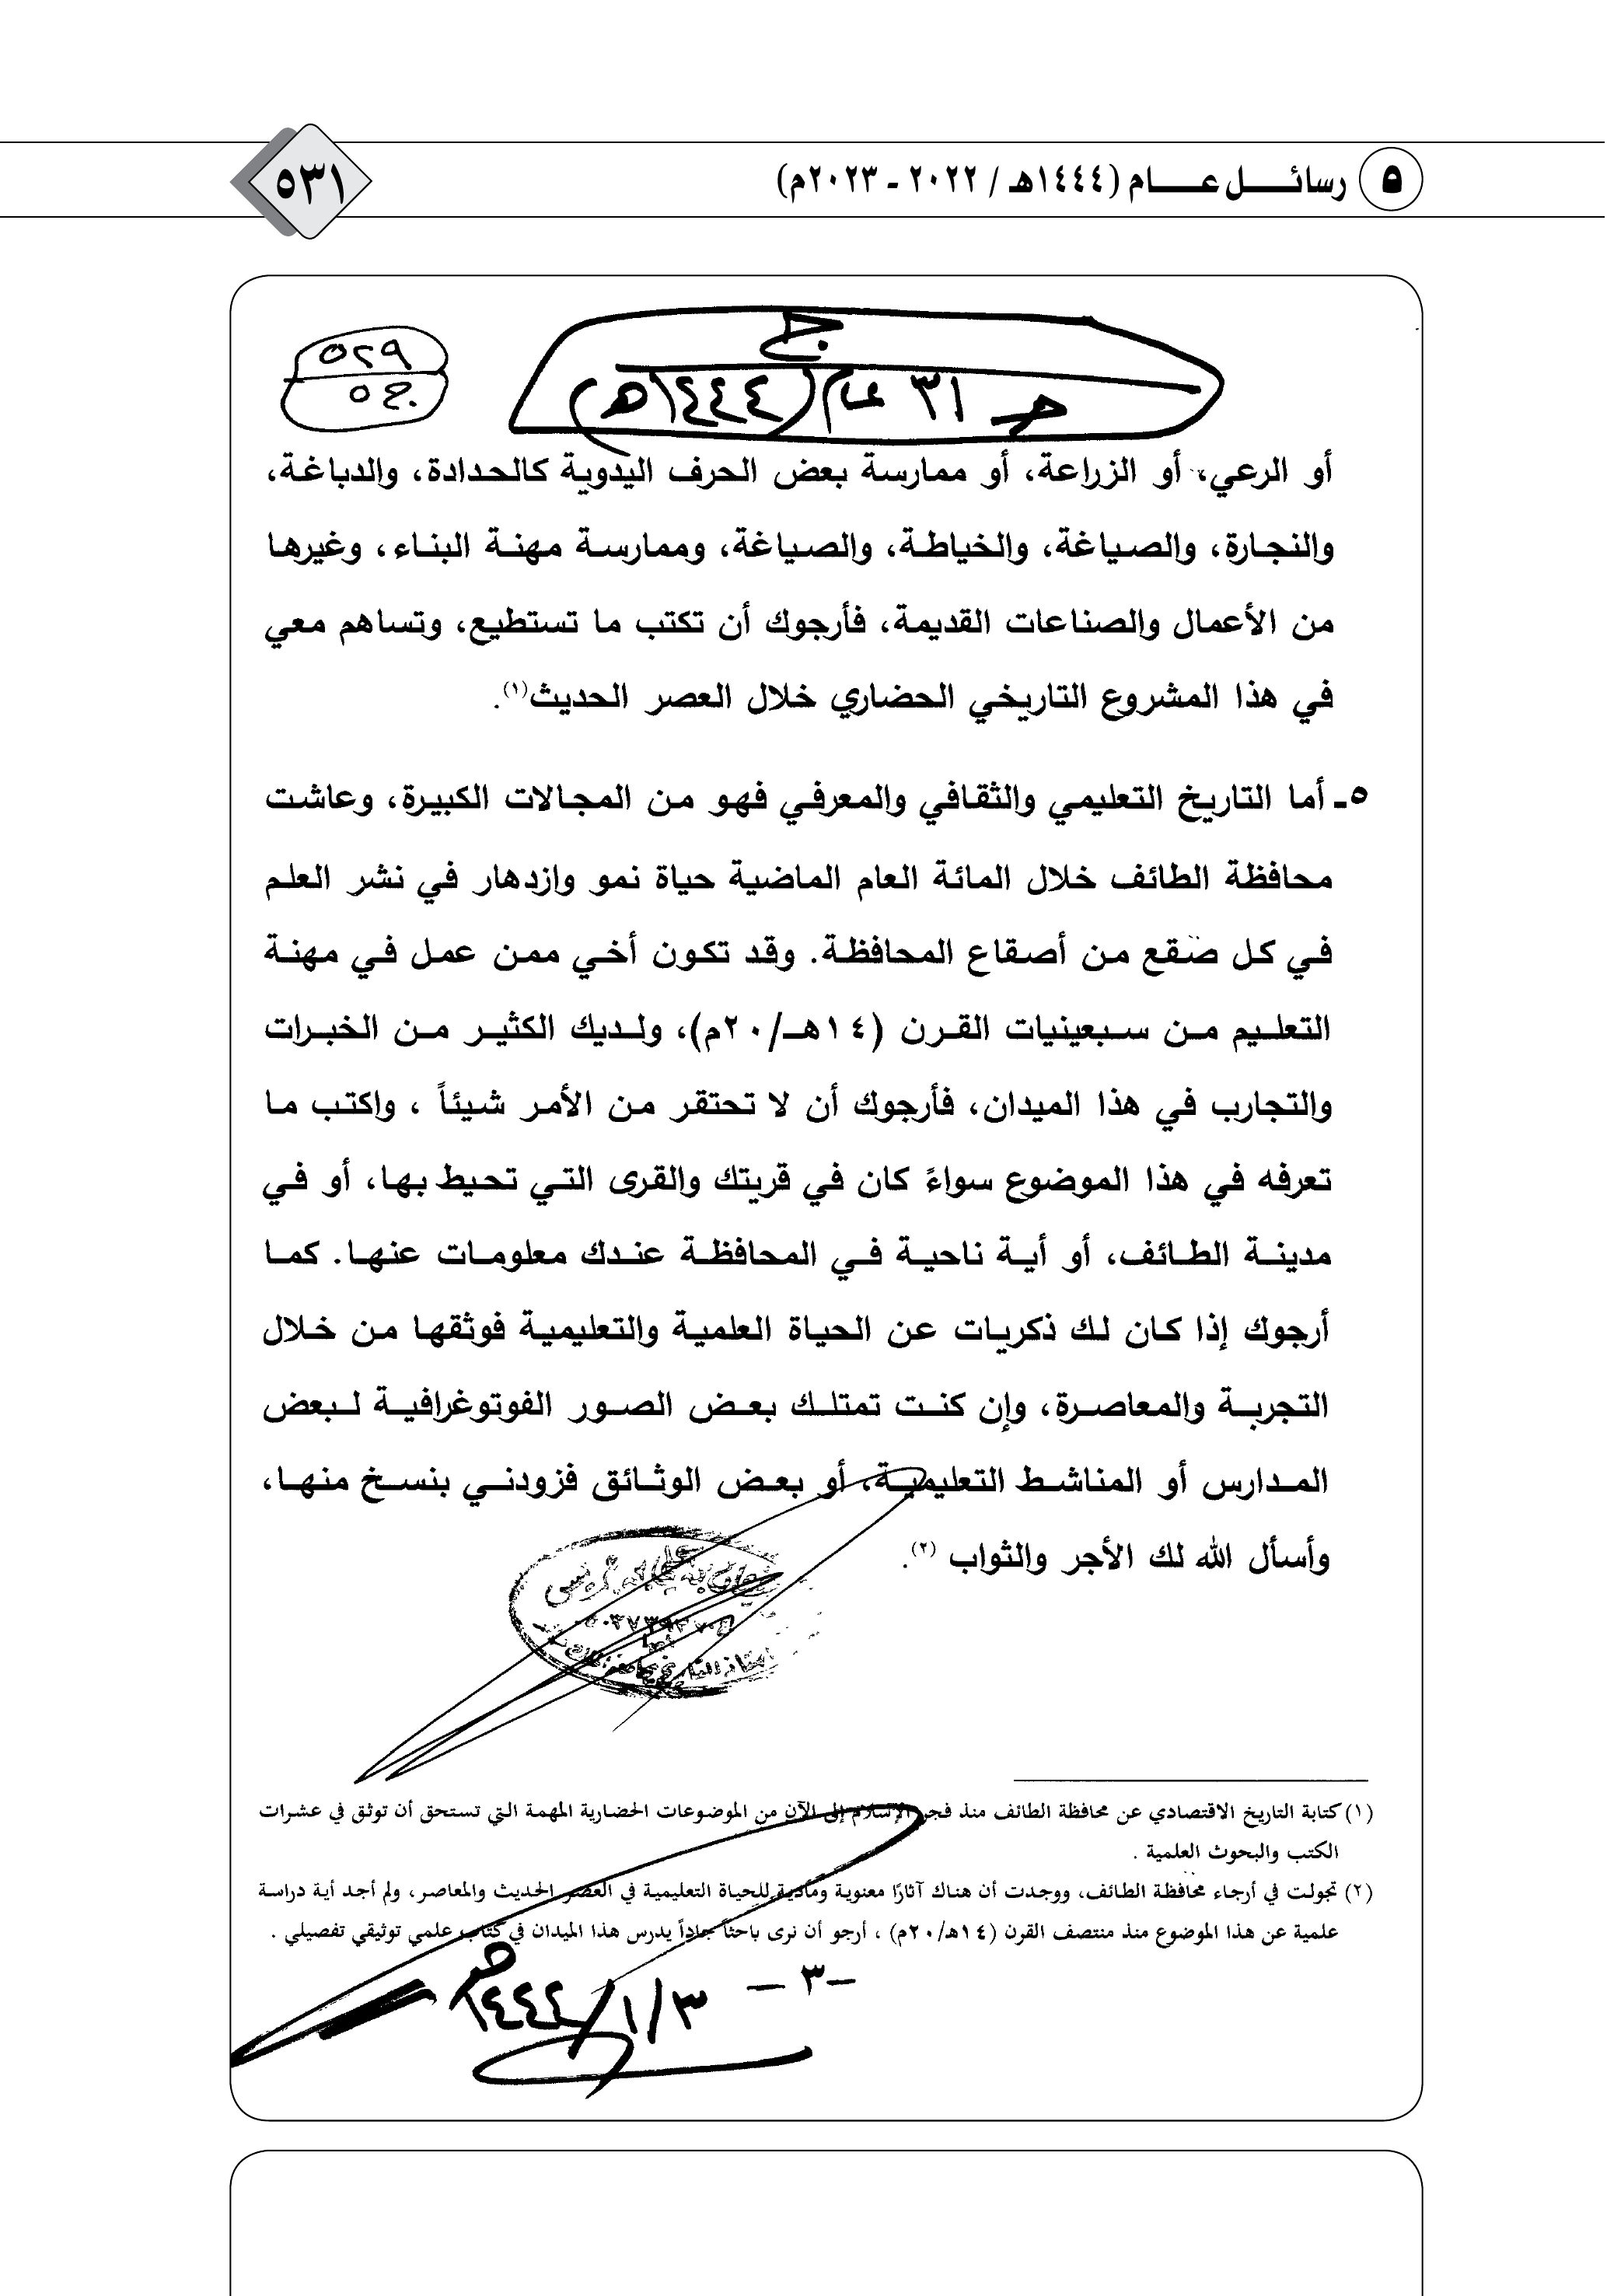 ٥ رسائل عام (١٤٤٤هـ / ٢٠٢٢ - ٢٠٢٣م)
٥٣١
ج
حـ ٣١ عام (١٤٤٤هـ)
٥٢٩
ج ٥
أو الرعي، أو الزراعة، أو ممارسة بعض الحرف اليدوية كالحدادة، والدباغة،
والنجارة، والصياغة، والخياطة، والصياغة، وممارسة مهنة البناء، وغيرها
من الأعمال والصناعات القديمة، فأرجوك أن تكتب ما تستطيع، وتساهم معي
في هذا المشروع التاريخي الحضاري خلال العصر الحديث(١).
٥- أما التاريخ التعليمي والثقافي والمعرفي فهو من المجالات الكبيرة، وعاشت
محافظة الطائف خلال المائة العام الماضية حياة نمو وازدهار في نشر العلم
في كل صقع من أصقاع المحافظة. وقد تكون أخي ممن عمل في مهنة
التعليم من سبعينيات القرن (١٤هـ/٢٠م)، ولديك الكثير من الخبرات
والتجارب في هذا الميدان، فأرجوك أن لا تحتقر من الأمر شيئاً ، واكتب ما
تعرفه في هذا الموضوع سواءً كان في قريتك والقرى التي تحيط بها، أو في
مدينة الطائف، أو أية ناحية في المحافظة عندك معلومات عنها. كما
أرجوك إذا كان لك ذكريات عن الحياة العلمية والتعليمية فوثقها من خلال
التجربة والمعاصرة، وإن كنت تمتلك بعض الصور الفوتوغرافية لبعض
المدارس أو المناشط التعليمية، أو بعض الوثائق فزودني بنسخ منها،
وأسأل الله لك الأجر والثواب (٢).
(١) كتابة التاريخ الاقتصادي عن محافظة الطائف منذ فجر الإسلام إلى الآن من الموضوعات الحضارية المهمة التي تستحق أن توثق في عشرات
الكتب والبحوث العلمية .
(٢) تجولت في أرجاء محافظة الطائف، ووجدت أن هناك آثارًا معنوية ومادية للحياة التعليمية في العصر الحديث والمعاصر، ولم أجد أية دراسة
علمية عن هذا الموضوع منذ منتصف القرن (١٤هـ/٢٠م) ، أرجو أن نرى باحثاً جاداً يدرس هذا الميدان في كتاب علمي توثيقي تفصيلي .
- ٣ -
٣/١/١٤٤٤هـ